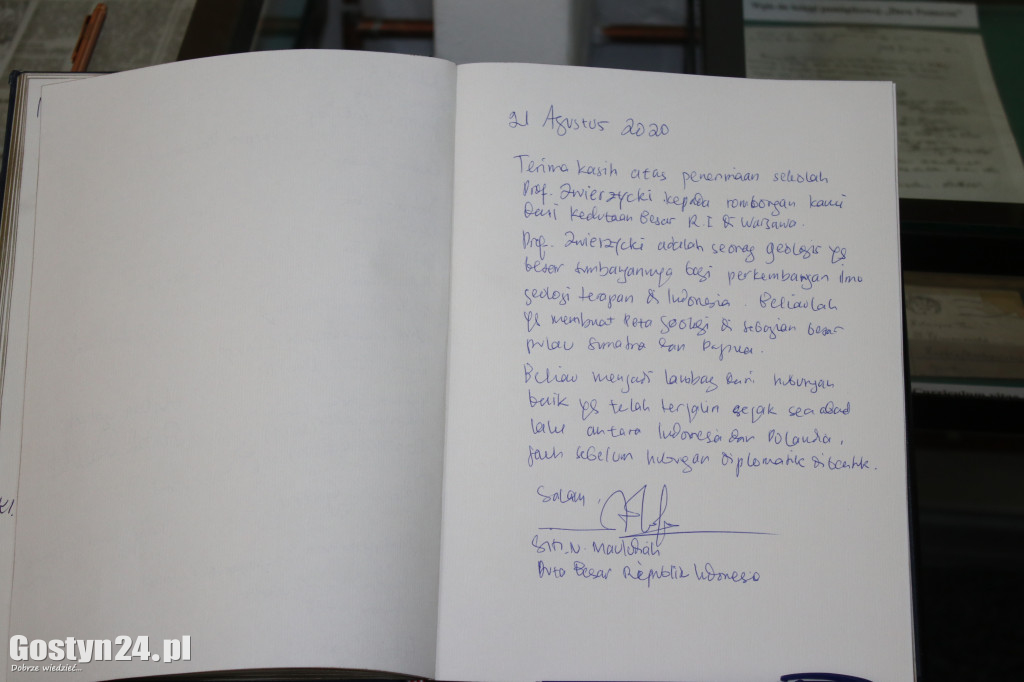 21 Agustus 2020
Terima kasih atas penerimaan sekolah
Prof. Zwierzycki kepada rombongan kami
Dari Kedutaan Besar R.I di Warsawa.
Prof. Zwierzycki adalah seorang geologis yg
besar sumbangannya bagi perkembangan ilmu
geologi terapan di Indonesia. Beliaulah
yg membuat Peta Geologi di sebagian besar
pulau Sumatra dan Papua.
Beliau menjadi lambang dari hubungan
baik yg telah terjalin sejak seabad
lalu antara Indonesia dan Polandia,
jauh sebelum hubungan diplomatik dibentuk.
Salam,
Siti N. Mauludiah
Duta Besar Republik Indonesia
Gostyn24.pl
Dobrze wiedzieć...